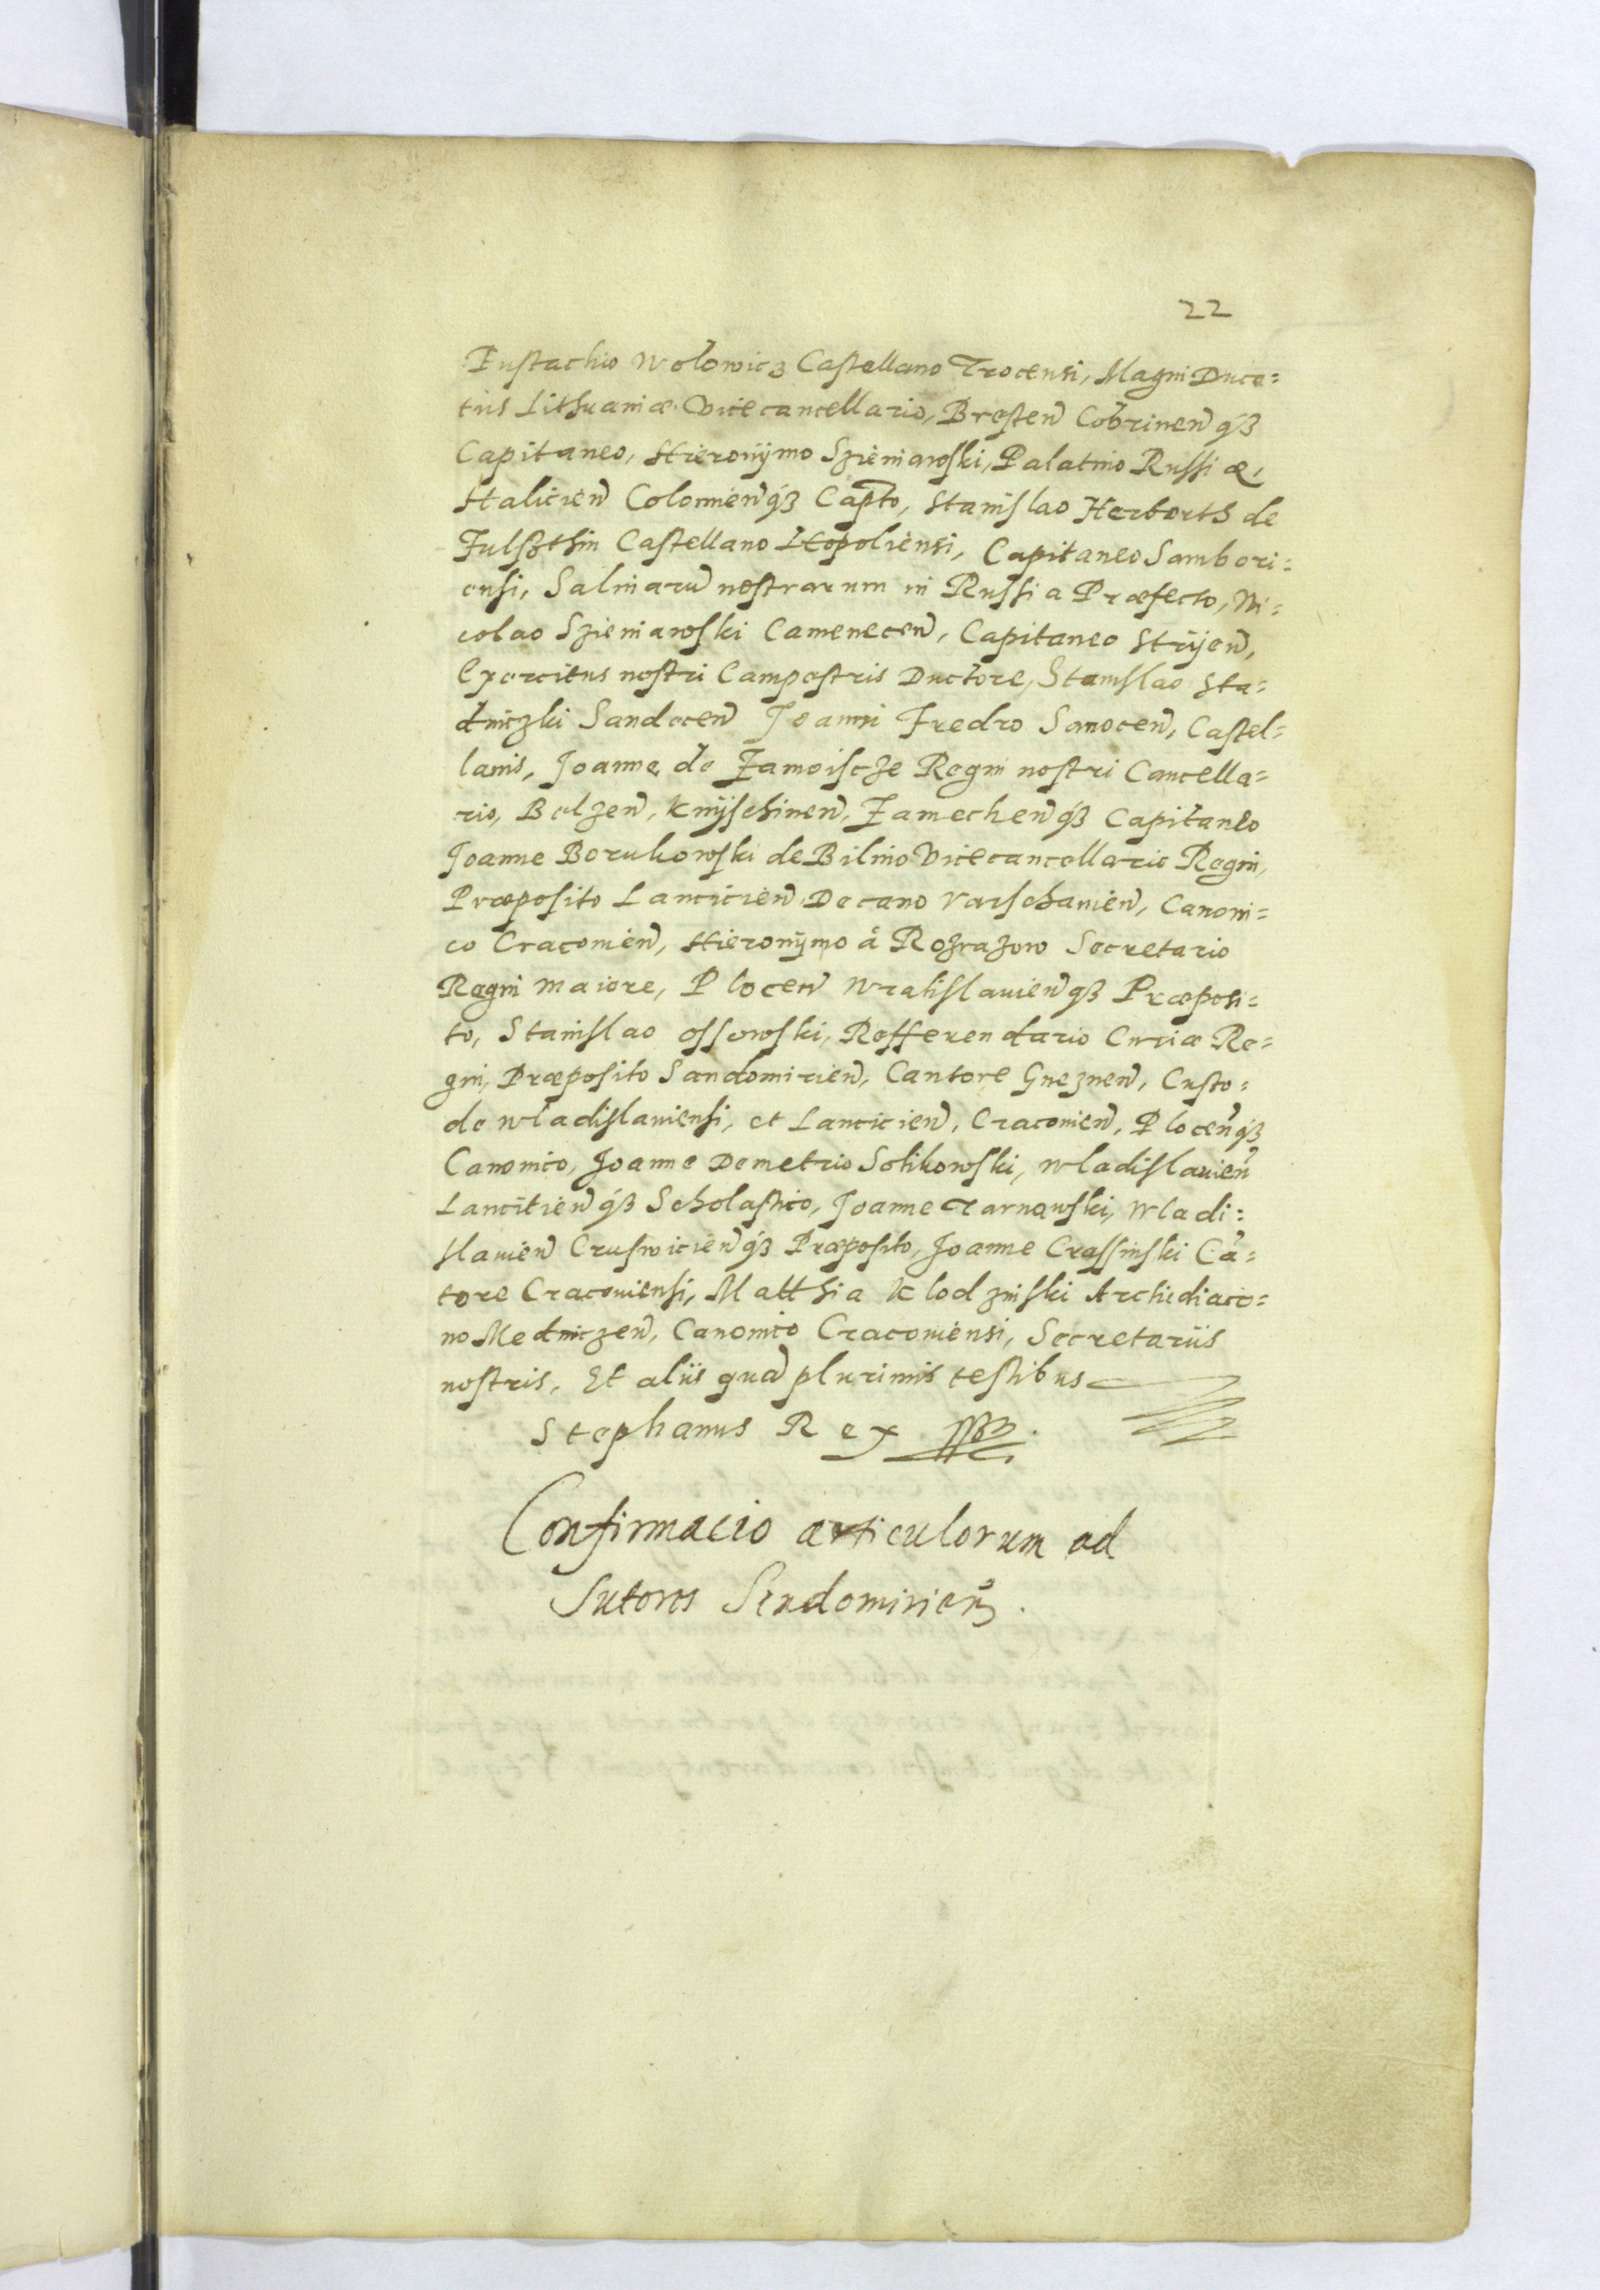 22
Eustachio Wolowicz Castellano Trocensi, Magni Duca=
tus Lithuaniæ Vicecancellario, Bresten̄ Cobrinen̄ qз
Capitaneo, Hieronÿmo Szieniawski, Palatino Russiæ,
Halicien̄ Colomien̄qз Capto, Stanislao Herborth de
Fulszthin Castellano Leopoliensi, Capitaneo Sambori=
ensi, Salinarū nostrarum in Russia Præfecto, Ni=
colao Szieniawski Camenecen̄, Capitaneo Strÿen̄,
Exercitus nostri Campestris Ductore, Stanislao Sta=
dniczki Sandecen̄ Joanni Fredro Sanocen̄, Castel=
lanis, Joanne de Zamoiscze Regni nostri Cancella=
rio, Belzen̄, Knÿschinen̄, Zamechen̄qз Capitaneo
Joanne Borukowski de Bilino Vicecancellario Regni,
Præposito Lancicien̄, Decano Varschauien̄, Canoni=
co Cracouien̄, Hieronÿmo à Rozrazow Secretario
Regni Maiore, Plocen̄ Wratislauien̄qз Præposi=
to, Stanislao Ossowski, Refferendario Curiæ Re=
gni, Præposito Sandomirien̄, Cantore Gneznen̄, Custo=
de Wladislauiensi, et Lancicien̄, Cracouien̄, Plocen̄qз
Canonico, Joanne Demetrio Solikowski, Wladislauien̄
Lancitien̄qз Scholastico, Joanne Tarnowski, Wladi=
slauien̄ Crusuicien̄qз Præposito, Joanne Crassinski Cā=
tore Cracouiensi, Matthia Klodzinski Archidiaco=
no Medniczen̄, Canonico Cracouiensi, Secretariis
nostris, Et aliis quā plurimis testibus
Stephanus Rex
Confirmacio articulorum ad
Sutores Sendomirien̄.